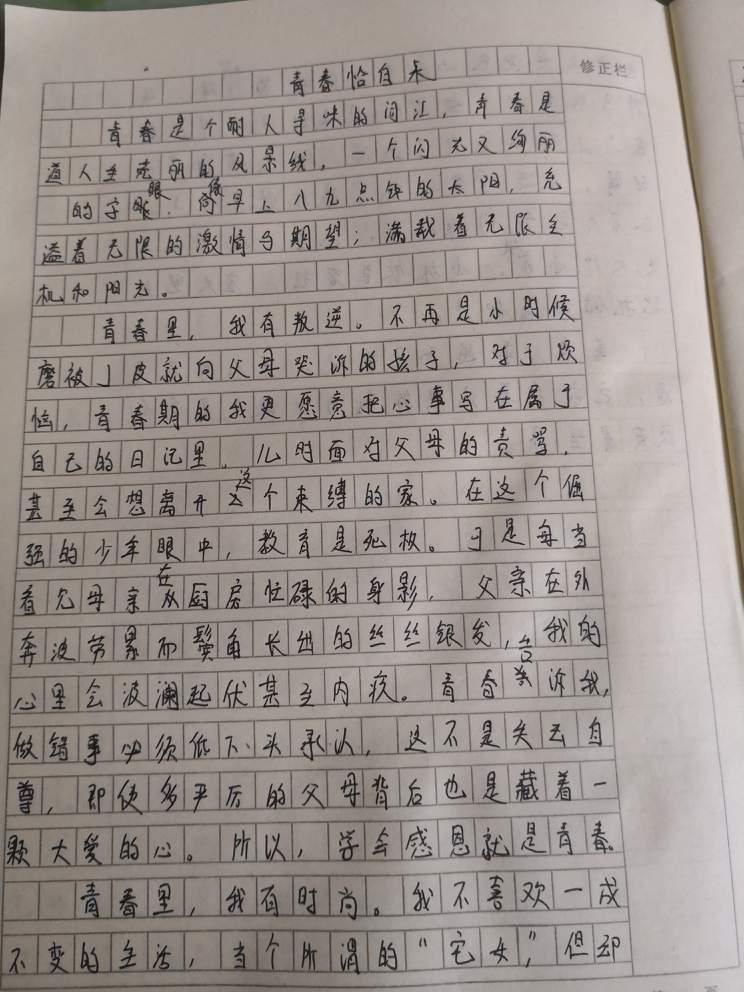 青春恰自来
修正栏
青春是个耐人寻味的词汇，青春是
道人生亮丽的风景线，一个闪光又绚丽
的字眼，像早上八九点钟的太阳，充
溢着无限的激情与期望；满载着无限生
机和阳光。
青春里，我有叛逆。不再是小时候
磨被丁皮就向父母哭诉的孩子，对于烦
恼，青春期的我更愿意把心事写在属于
自己的日记里，儿时面对父母的责骂，
甚至会想离开这个束缚的家。在这个倔
强的少年眼中，教育是死板。于是每当
看见母亲在厨房忙碌的身影，父亲在外
奔波劳累而鬓角长出的丝丝银发，我的
心里会波澜起伏甚至内疚。青春告诉我，
做错事必须低下头承认，这不是失去自
尊，即使多严厉的父母背后也是藏着一
颗大爱的心。所以，学会感恩就是青春。
青春里，我有时尚。我不喜欢一成
不变的生活，当个所谓的“宅女”，但却